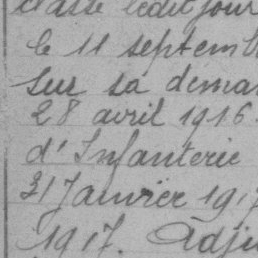 classe ledit jour
le 11 septemb
sur sa deman
28 avril 1916
d'Infanterie
31 Janvier 191
1917. Adju